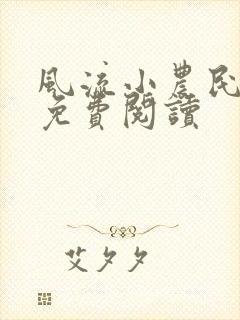 風流小農民
免費閱讀
艾夕夕